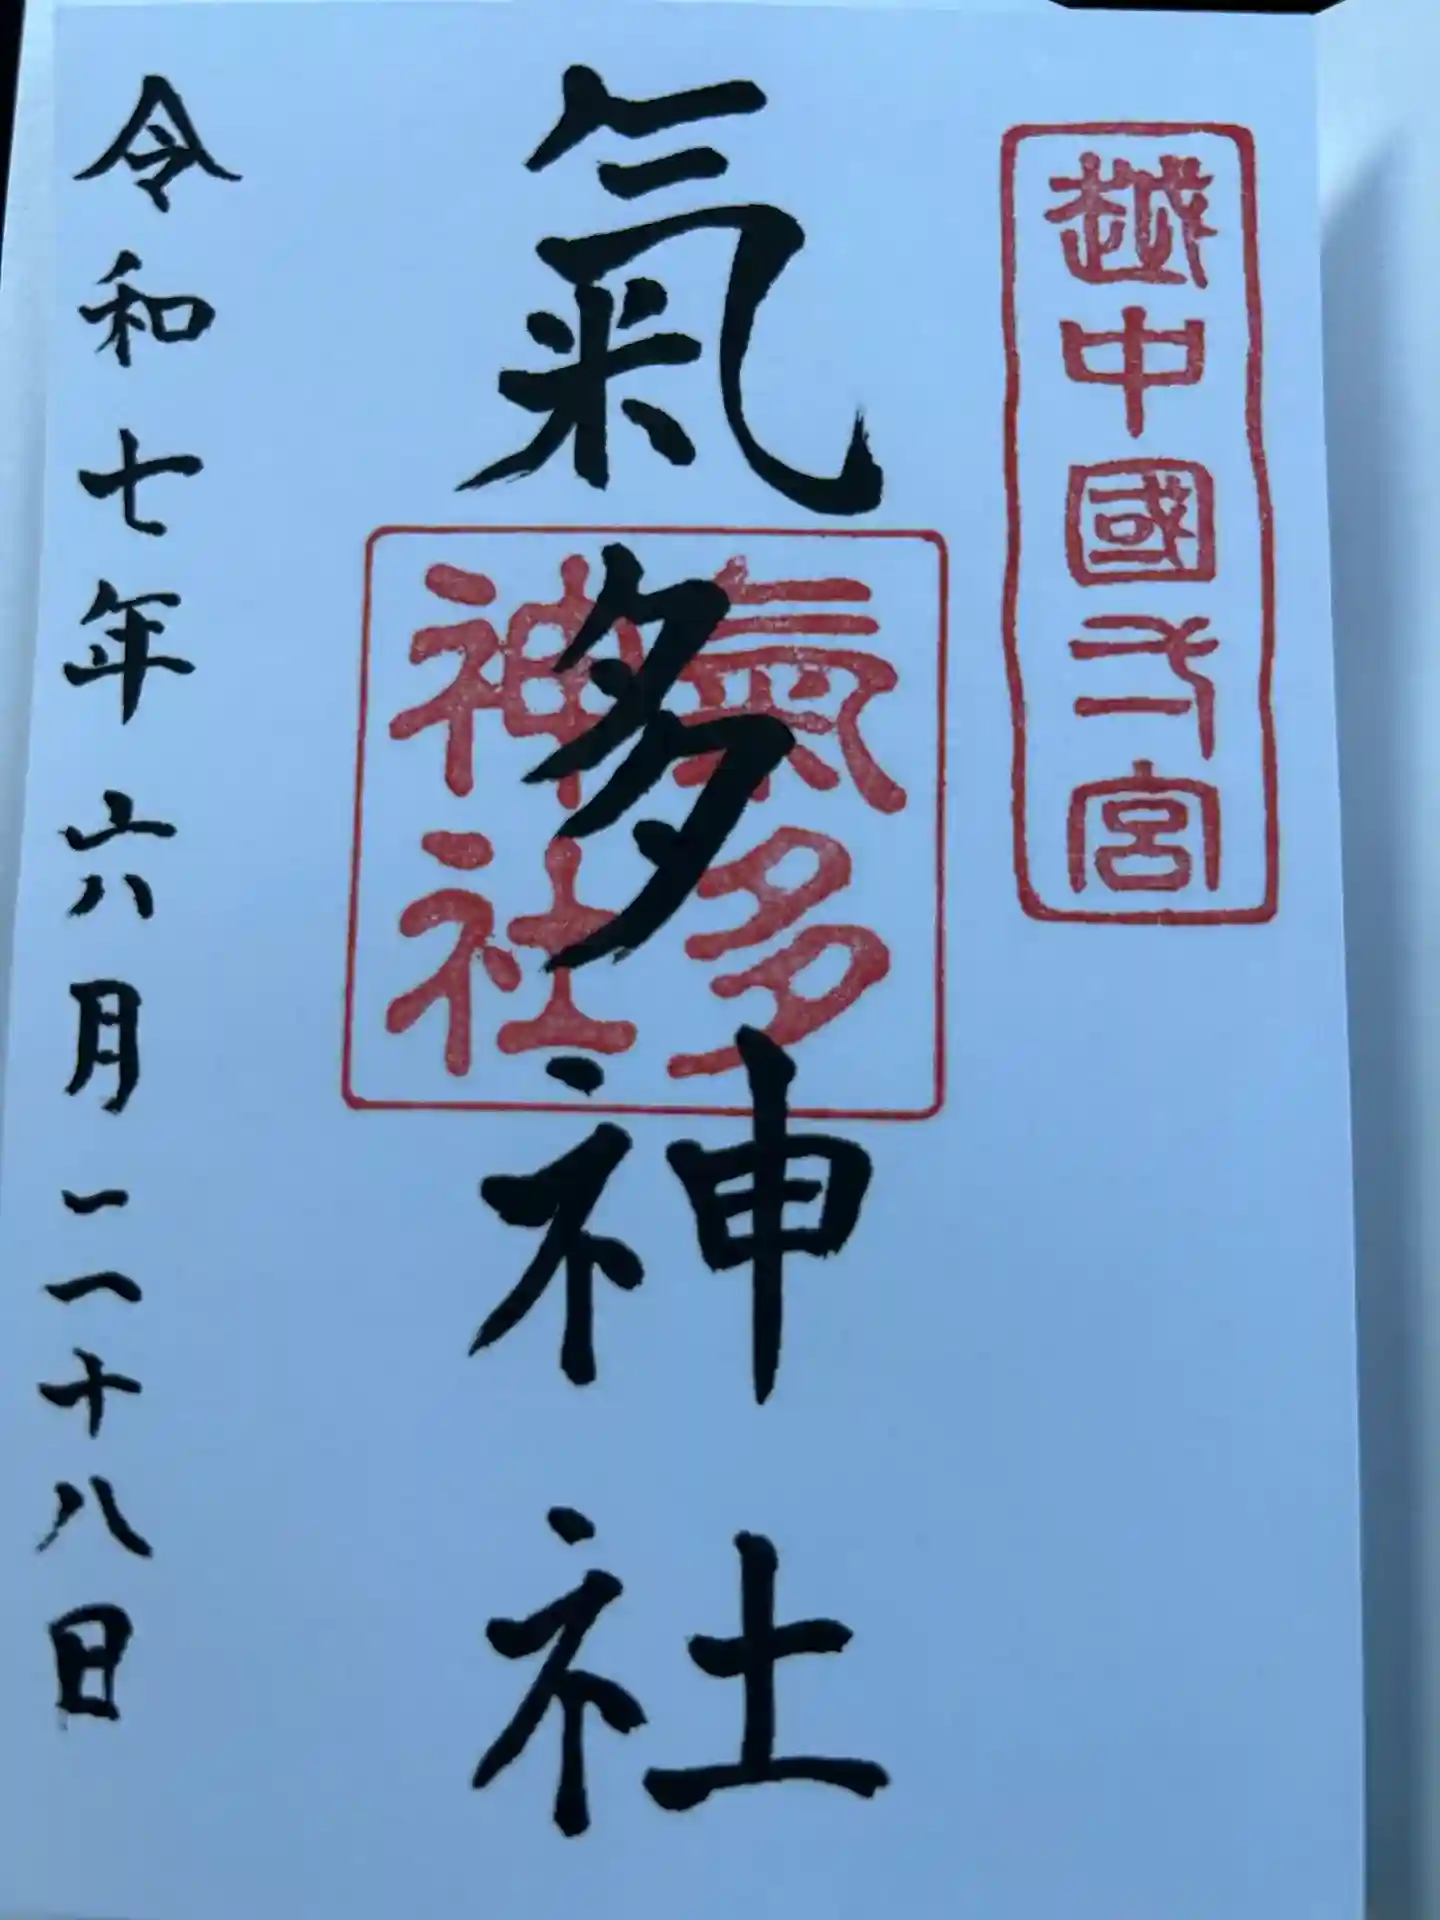 越中國弌宮
氣多神社
氣多
神社
令和七年六月二十八日